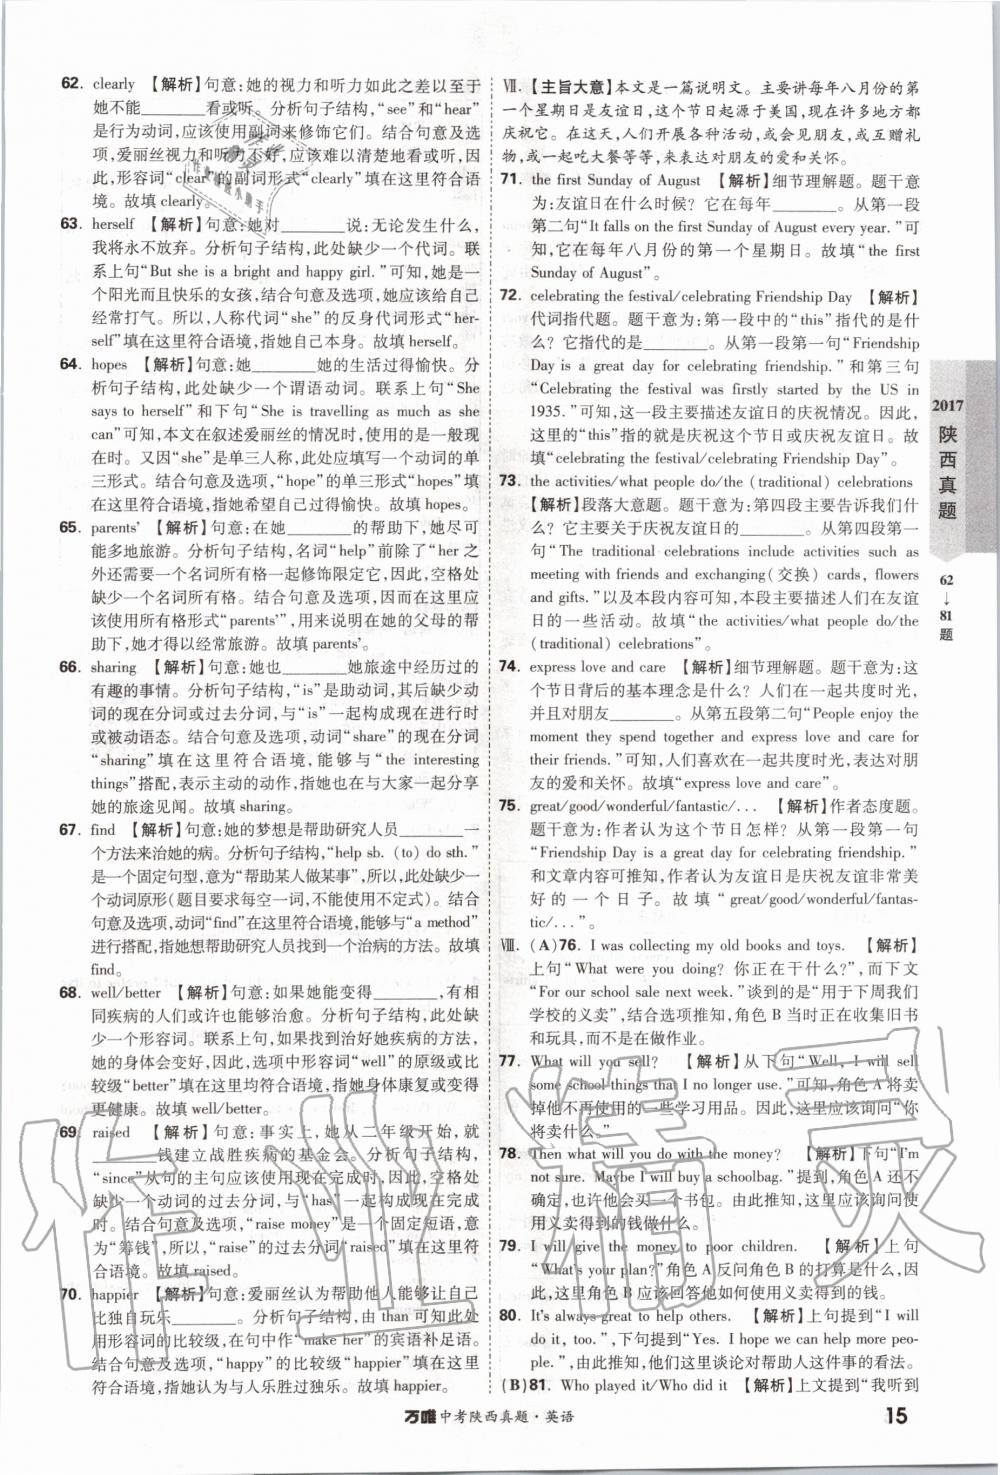 62. clearly 【解析】句意:她的视力和听力如此之差以至于
她不能________看或听。分析句子结构,“see”和“hear”
是行为动词,应该使用副词来修饰它们。结合句意及选
项,爱丽丝视力和听力不好,应该难以清楚地看或听。因
此,形容词“clear”的副词形式“clearly”填在这里符合语
境。故填clearly。
63. herself 【解析】句意:她对________说:无论发生什么,
我将永不放弃。分析句子结构,此处缺少一个代词。联
系上句“But she is a bright and happy girl.”可知,她是一
个阳光而且快乐的女孩,结合句意及选项,她应该给自己
经常打气。所以,人称代词“she”的反身代词形式“her-
self”填在这里符合语境,指她自己本身。故填herself。
64. hopes 【解析】句意:她________她的生活过得愉快。分
析句子结构,此处缺少一个谓语动词。联系上句“She
says to herself”和下句“She is travelling as much as she
can”可知,本文在叙述爱丽丝的情况时,使用的是一般现
在时。又因“she”是单三人称,此处应填写一个动词的单
三形式。结合句意及选项,“hope”的单三形式“hopes”填
在这里符合语境,指她希望自己过得愉快。故填hopes。
65. parents' 【解析】句意:在她________的帮助下,她尽可
能多地旅游。分析句子结构,名词“help”前除了“her 之
外还需要一个名词所有格一起修饰限定它,因此,空格处
缺少一个名词所有格。结合句意及选项,因而在这里应
该使用所有格形式“parents'”,来说明在她的父母的帮
助下,她才得以经常旅游。故填parents'。
66. sharing 【解析】句意:她也________她旅途中经历过的
有趣的事情。分析句子结构,“is”是助动词,其后缺少动
词的现在分词或过去分词,与“is”一起构成现在进行时
或被动语态。结合句意及选项,动词“share”的现在分词
“sharing”填在这里符合语境,能够与“the interesting
things”搭配,表示主动的动作,指她也在与大家一起分享
她的旅途见闻。故填sharing。
67. find 【解析】句意:她的梦想是帮助研究人员________一
个方法来治她的病。分析句子结构,“help sb. (to) do sth.”
是一个固定句型,意为“帮助某人做某事”,所以,此处缺少一
个动词原形(题目要求每空一词,不能使用不定式)。结合
句意及选项,动词“find”在这里符合语境,能够与“a method”
进行搭配,指她想帮助研究人员找到一个治病的方法。故填
find。
68. well/better 【解析】句意:如果她能变得________,有相
同疾病的人们或许也能够治愈。分析句子结构,此处缺
少一个形容词。结合句意及选项,如果找到治好她疾病的方法,
她的身体会变好,因此,选项中形容词“well”的原级或比
较级“better”填在这里均符合语境,指她变得健康或变得
更健康。故填well/better。
69. raised 【解析】句意:事实上,她从二年级开始,就
________钱建立战胜疾病的基金会。分析句子结构,
“since”从句的主句时态应该使用现在完成时,因此空格处
缺少一个动词的过去分词,与“has”一起构成现在完成
时。结合句意及选项,“raise money”是一个固定短语,意
为“筹钱”,所以,“raise”的过去分词“raised”填在这里符
合语境。故填raised。
70. happier 【解析】句意:爱丽丝认为帮助他人能够让自己
比独自玩乐________。分析句子结构,由than可知此处
应用形容词的比较级,在句中作“make her”的宾语补足语。
结合句意及选项,“happy”的比较级“happier”填在这里
符合语境,指她认为与人乐胜过独乐。故填happier。
Ⅶ. 【主旨大意】本文是一篇说明文。主要讲每年八月份的第
一个星期日是友谊日,这个节日起源于美国,现在许多地方都
庆祝它。在这一天,人们开展各种活动,或会见朋友,或互赠礼
物,或一起吃大餐等等,来表达对朋友的爱和关怀。
71. the first Sunday of August 【解析】细节理解题。题干意
为:友谊日在什么时候?它在每年________。从第一段
第二句“It falls on the first Sunday of August every year.”可
知,它在每年八月份的第一个星期日。故填“the first
Sunday of August”。
72. celebrating the festival/celebrating Friendship Day 【解析】
代词指代题。题干意为:第一段中的“this”指代的是什
么?它指代的是________。从第一段第一句“Friendship
Day is a great day for celebrating friendship.”和第三句
“Celebrating the festival was firstly started by the US in
1935.”可知,这一段主要描述友谊日的庆祝情况。因此,
这里的“this”指的就是庆祝这个节日或庆祝友谊日。故
填“celebrating the festival/celebrating Friendship Day”。
73. the activities/what people do/the (traditional) celebrations
【解析】段落大意题。题干意为:第四段主要告诉我们什
么?它主要关于庆祝友谊日的________。从第四段第一
句“The traditional celebrations include activities such as
meeting with friends and exchanging(交换) cards, flowers
and gifts.”以及本段内容可知,本段主要描述人们在友谊
日的一些活动。故填“the activities/what people do/the
(traditional) celebrations”。
74. express love and care 【解析】细节理解题。题干意为:这
个节日背后的基本理念是什么?人们在一起共度时光,
并且对朋友________。从第五段第二句“People enjoy the
moment they spend together and express love and care for
their friends.”可知,人们喜欢在一起共度时光,并表达对朋
友的爱和关怀。故填“express love and care”。
75. great/good/wonderful/fantastic/... 【解析】作者态度题。
题干意为:作者认为这个节日怎样?从第一段第一句
“Friendship Day is a great day for celebrating friendship.”
和文章内容可推知,作者认为友谊日是庆祝友谊非常美
好的一个日子。故填“great/good/wonderful/fantas-
tic/...”。
Ⅷ. (A)76. I was collecting my old books and toys. 【解析】
上句“What were you doing?你正在干什么?”,而下文
“For our school sale next week.”谈到的是“用于下周我们
学校的义卖”,结合选项推知,角色B当时正在收集旧书
和玩具,而不是在做作业。
77. What will you sell? 【解析】从下句“Well, I will sell
some school things that I no longer use.”可知,角色A将卖
掉他不再使用的一些学习用品。因此,这里应该询问“你
将卖什么。”
78. Then what will you do with the money? 【解析】下句“I'm
not sure. Maybe I will buy a schoolbag.”提到,角色A还
不确定,也许他会买一个书包。由此推知,这里应该询问使
用义卖得到的钱做什么。
79. I will give the money to poor children. 【解析】上句
“What's your plan?”角色A反问角色B的计划是什么,因
此,这里角色B应该回答他如何使用义卖得到的钱。
80. It's always great to help others. 【解析】上句提到“I will
do it, too.”,下句提到“Yes. I hope we can help more peo-
ple.”,由此推知,这里谈论对帮助人这件事的看法。
(B)81. Who played it/Who did it 【解析】上文提到“我听到
2017
陕西真题
62
↓
81
题
万唯中考陕西真题·英语
15
作业精灵